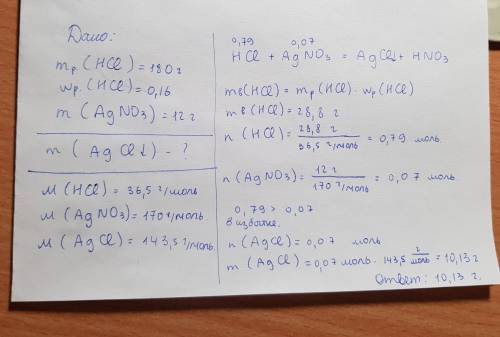 Дано:
mр(HCl) = 180 г
wр(HCl) = 0,16
m(AgNO3) = 12 г
m(AgCl↓) - ?
M(HCl) = 36,5 г/моль
M(AgNO3) = 170 г/моль.
M(AgCl) = 143,5 г/моль.
0,79 0,07
HCl + AgNO3 = AgCl↓ + HNO3
mв(HCl) = mр(HCl) · wр(HCl)
mв(HCl) = 28,8 г
n(HCl) = 28,8 г / 36,5 г/моль = 0,79 моль.
n(AgNO3) = 12 г / 170 г/моль = 0,07 моль.
0,79 > 0,07
в избытке.
n(AgCl) = 0,07 моль
m(AgCl) = 0,07 моль · 143,5 г/моль = 10,13 г
ответ: 10,13 г.